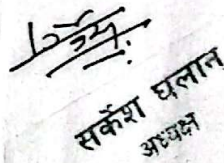 सर्केश घलान
अध्यक्ष